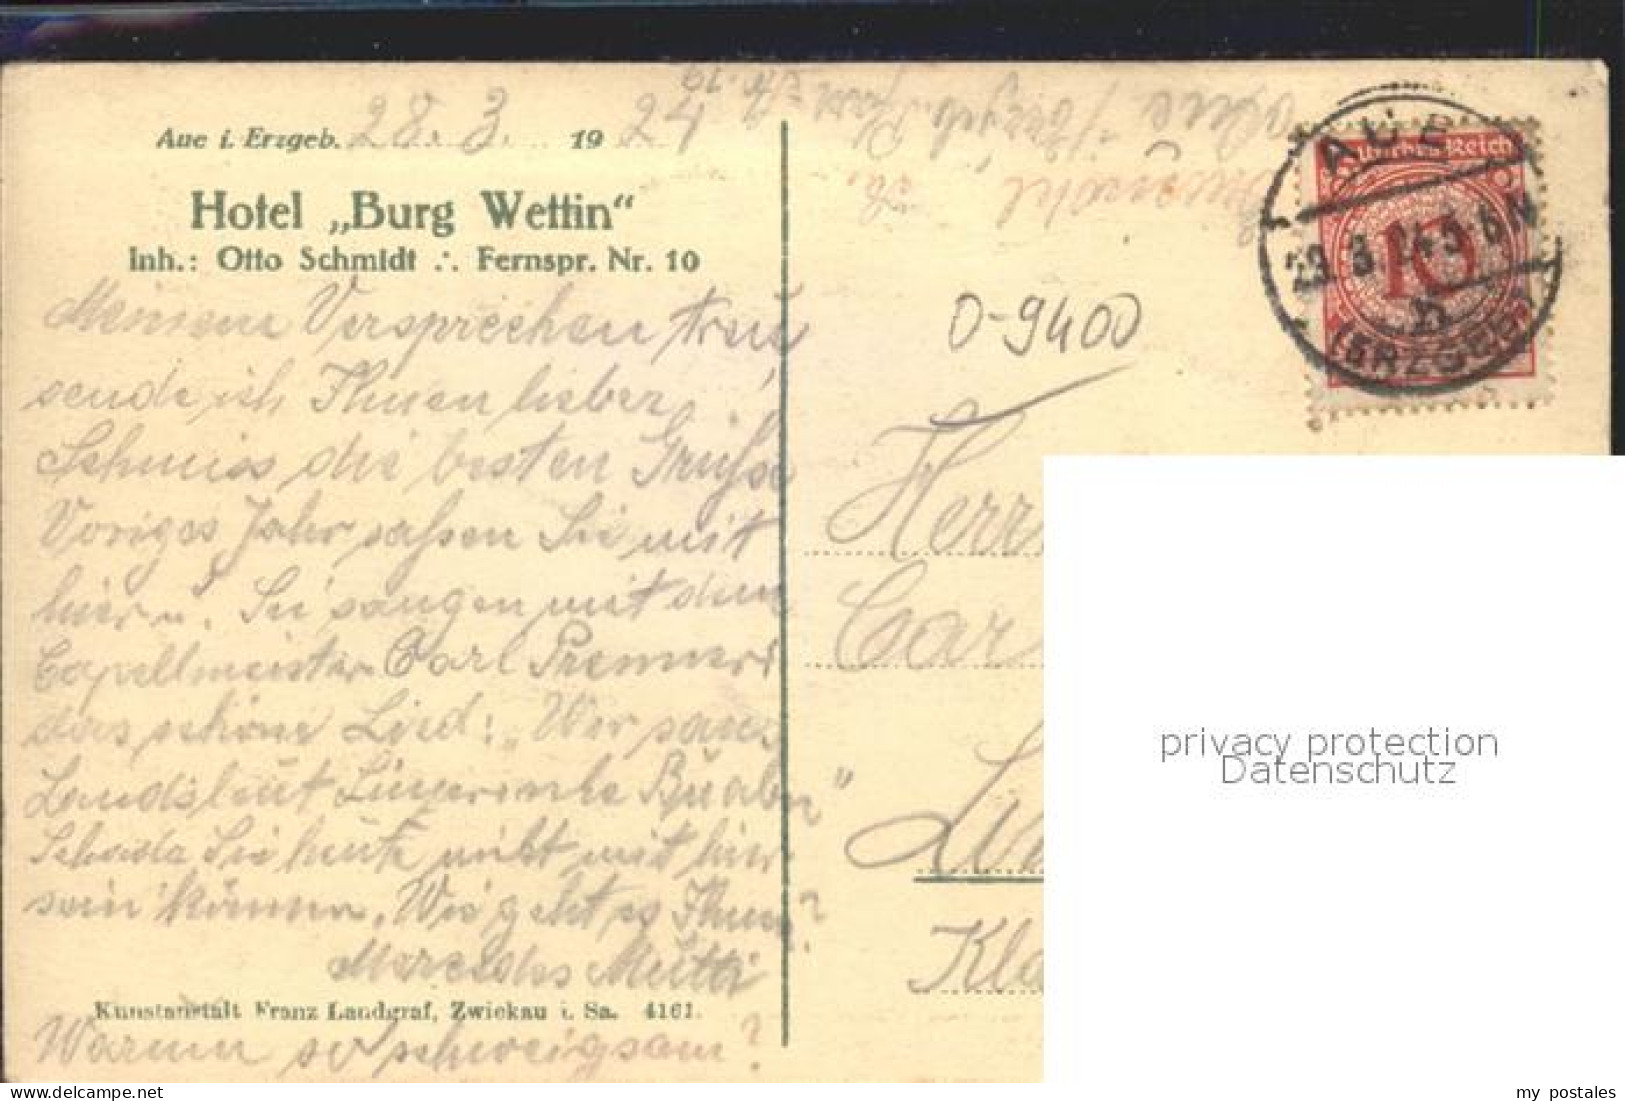 Aue i. Erzgeb. 28. 3. 1924
Hotel „Burg Wettin“
Inh.: Otto Schmidt ∴ Fernspr. Nr. 10
Meinem Versprechen treu
sende ich Ihnen lieber
die besten Grüße
Voriges Jahr saßen Sie mit
hier u. Sie sangen mit dem
Capellmeister Carl
das schöne Lied: „Wir san
Landsleut Buabn"
Schade Sie heute nicht mit hier
sein können. Wie geht es Ihnen?
Mutti
Kunstanstalt Franz Landgraf, Zwickau i. Sa. 4161.
Warum so schweigsam?
AUE
Deutsches Reich
10
29. 3. 24. 5-6N
(ERZGEB)
0-9400
Herr
Car
Kla
privacy protection
Datenschutz
my postales